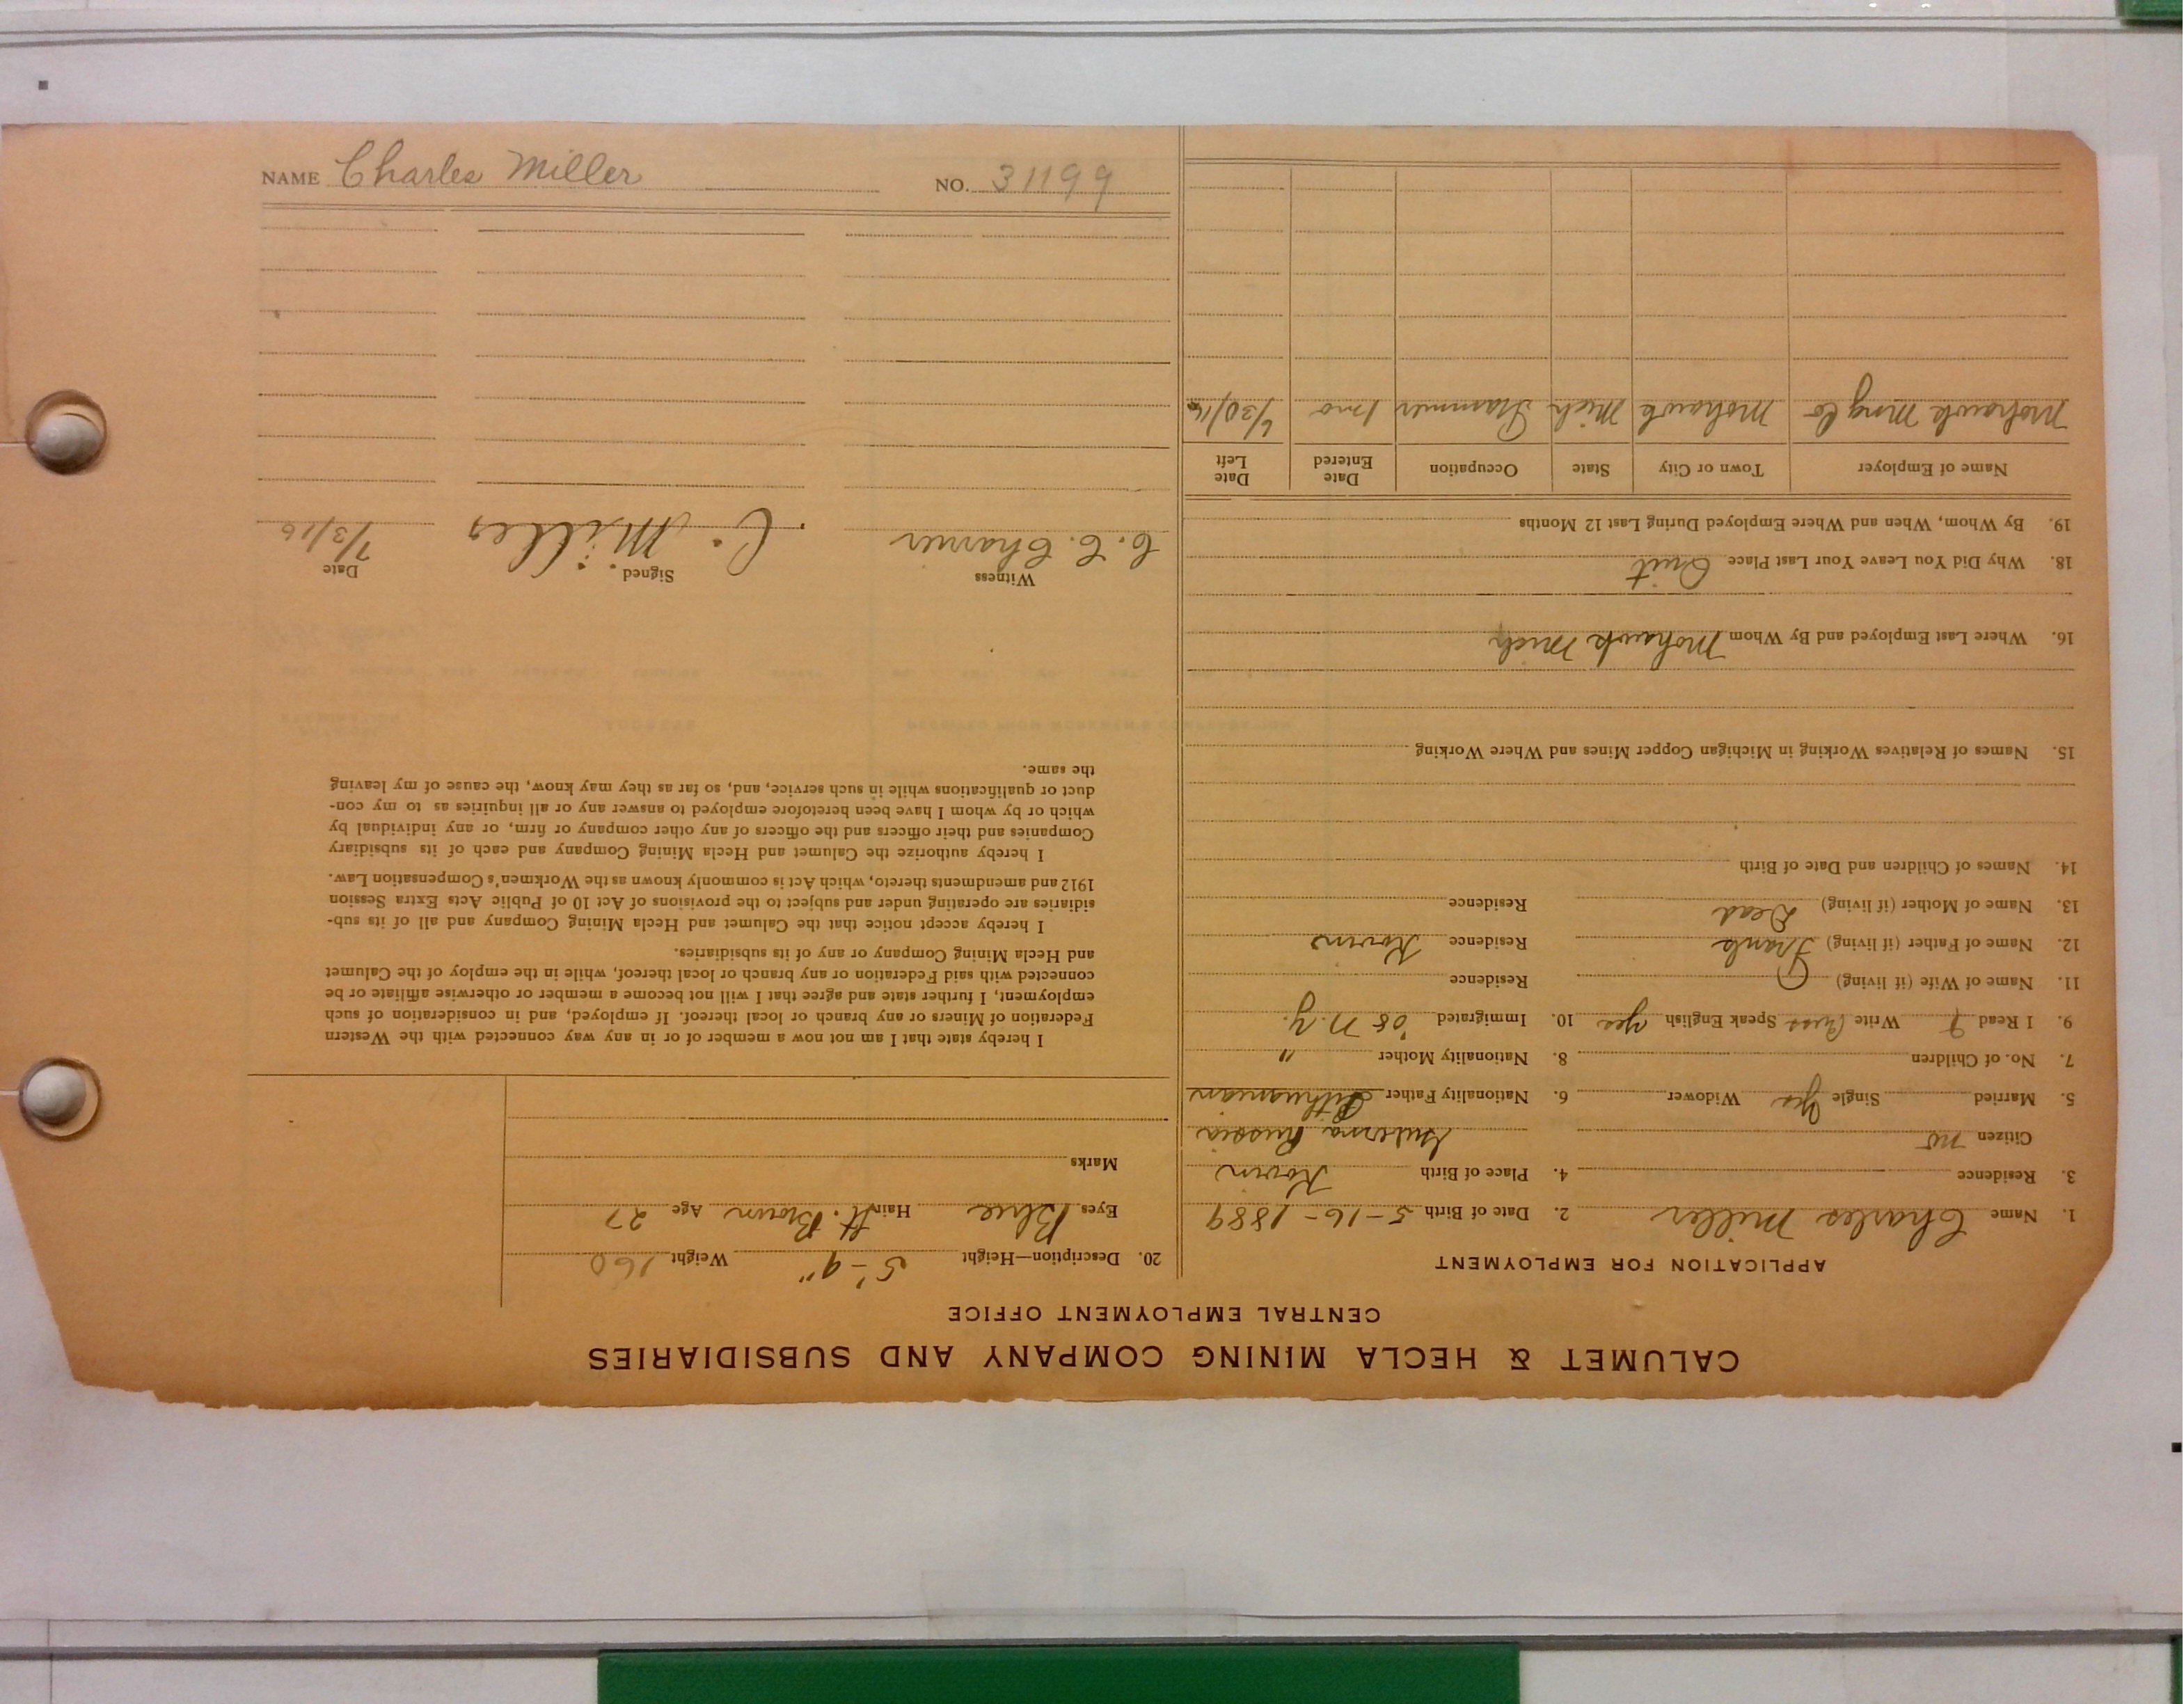 CALUMET & HECLA MINING COMPANY AND SUBSIDIARIES
CENTRAL EMPLOYMENT OFFICE
APPLICATION FOR EMPLOYMENT
1. Name Charles Miller 2. Date of Birth 5-16-1889
3. Residence 4. Place of Birth Kovin
Citizen no Guberna Russia
5. Married Single Yes Widower 6. Nationality Father Lithuanian
7. No. of Children 8. Nationality Mother "
9. I Read Write Speak English yes 10. Immigrated '08 N.Y.
11. Name of Wife (if living) Residence
12. Name of Father (if living) Frank Residence Kovin
13. Name of Mother (if living) Dead Residence
14. Names of Children and Date of Birth
15. Names of Relatives Working in Michigan Copper Mines and Where Working
16. Where Last Employed and By Whom Mohawk Mich
18. Why Did You Leave Your Last Place Quit
19. By Whom, When and Where Employed During Last 12 Months
Name of Employer Town or City State Occupation Date Entered Date Left
Mohawk Ming Co Mohawk Mich Trammer 1 mo 6/30/16
20. Description—Height 5'-9" Weight 160
Eyes Blue Hair lt. Brown Age 27
Marks
I hereby state that I am not now a member of or in any way connected with the Western
Federation of Miners or any branch or local thereof. If employed, and in consideration of such
employment, I further state and agree that I will not become a member or otherwise affiliate or be
connected with said Federation or any branch or local thereof, while in the employ of the Calumet
and Hecla Mining Company or any of its subsidiaries.
I hereby accept notice that the Calumet and Hecla Mining Company and all of its sub-
sidiaries are operating under and subject to the provisions of Act 10 of Public Acts Extra Session
1912 and amendments thereto, which Act is commonly known as the Workmen's Compensation Law.
I hereby authorize the Calumet and Hecla Mining Company and each of its subsidiary
Companies and their officers and the officers of any other company or firm, or any individual by
which or by whom I have been heretofore employed to answer any or all inquiries as to my con-
duct or qualifications while in such service, and, so far as they may know, the cause of my leaving
the same.
Witness Signed Date
C. C. C. Miller 7/3/16
NAME Charles Miller NO. 31199